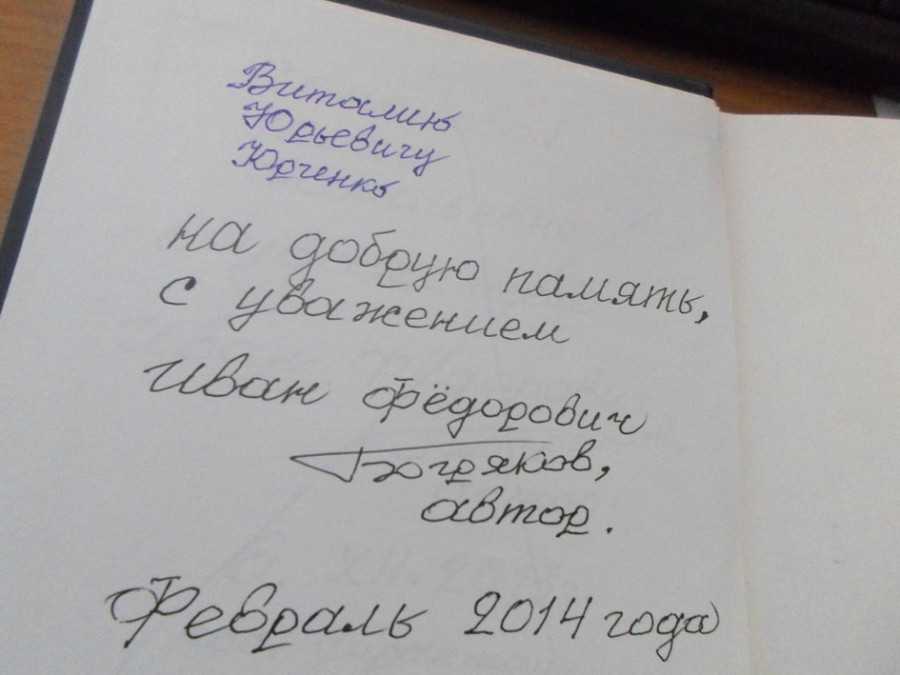 Виталию
Юрьевичу
Юрченко
на добрую память,
с уважением
Иван Фёдорович
Богряков,
автор.
Февраль 2014 года